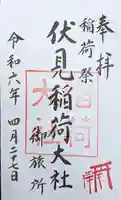 奉拝
稲荷祭
伏見稲荷大社
御旅所
令和六年 四月二十七日